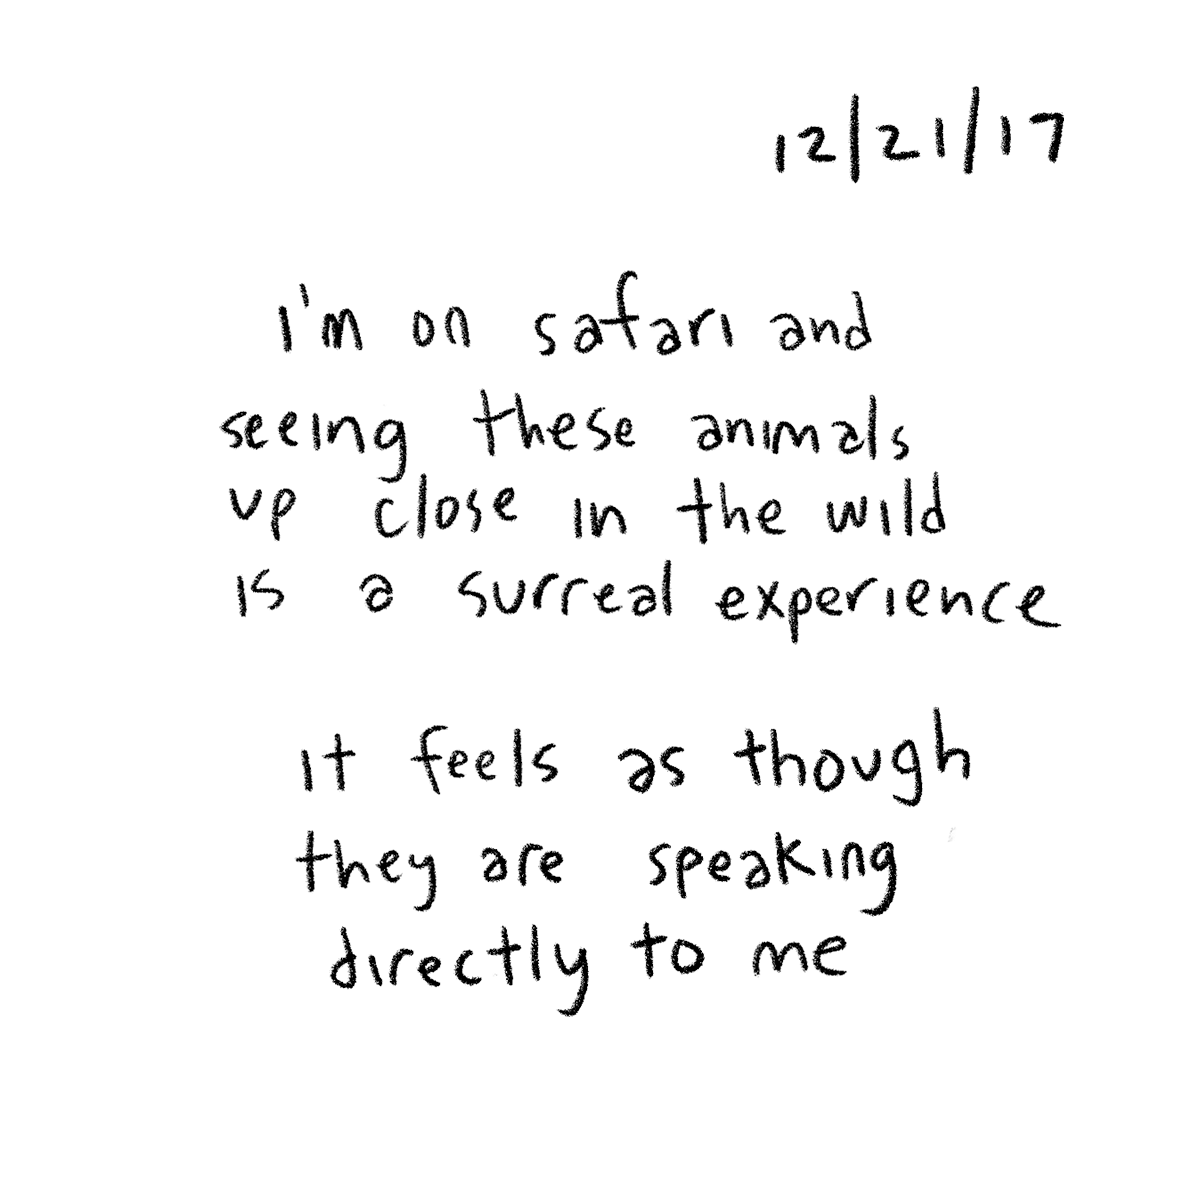 12/21/17
i'm on safari and
seeing these animals
up close in the wild
is a surreal experience
it feels as though
they are speaking
directly to me